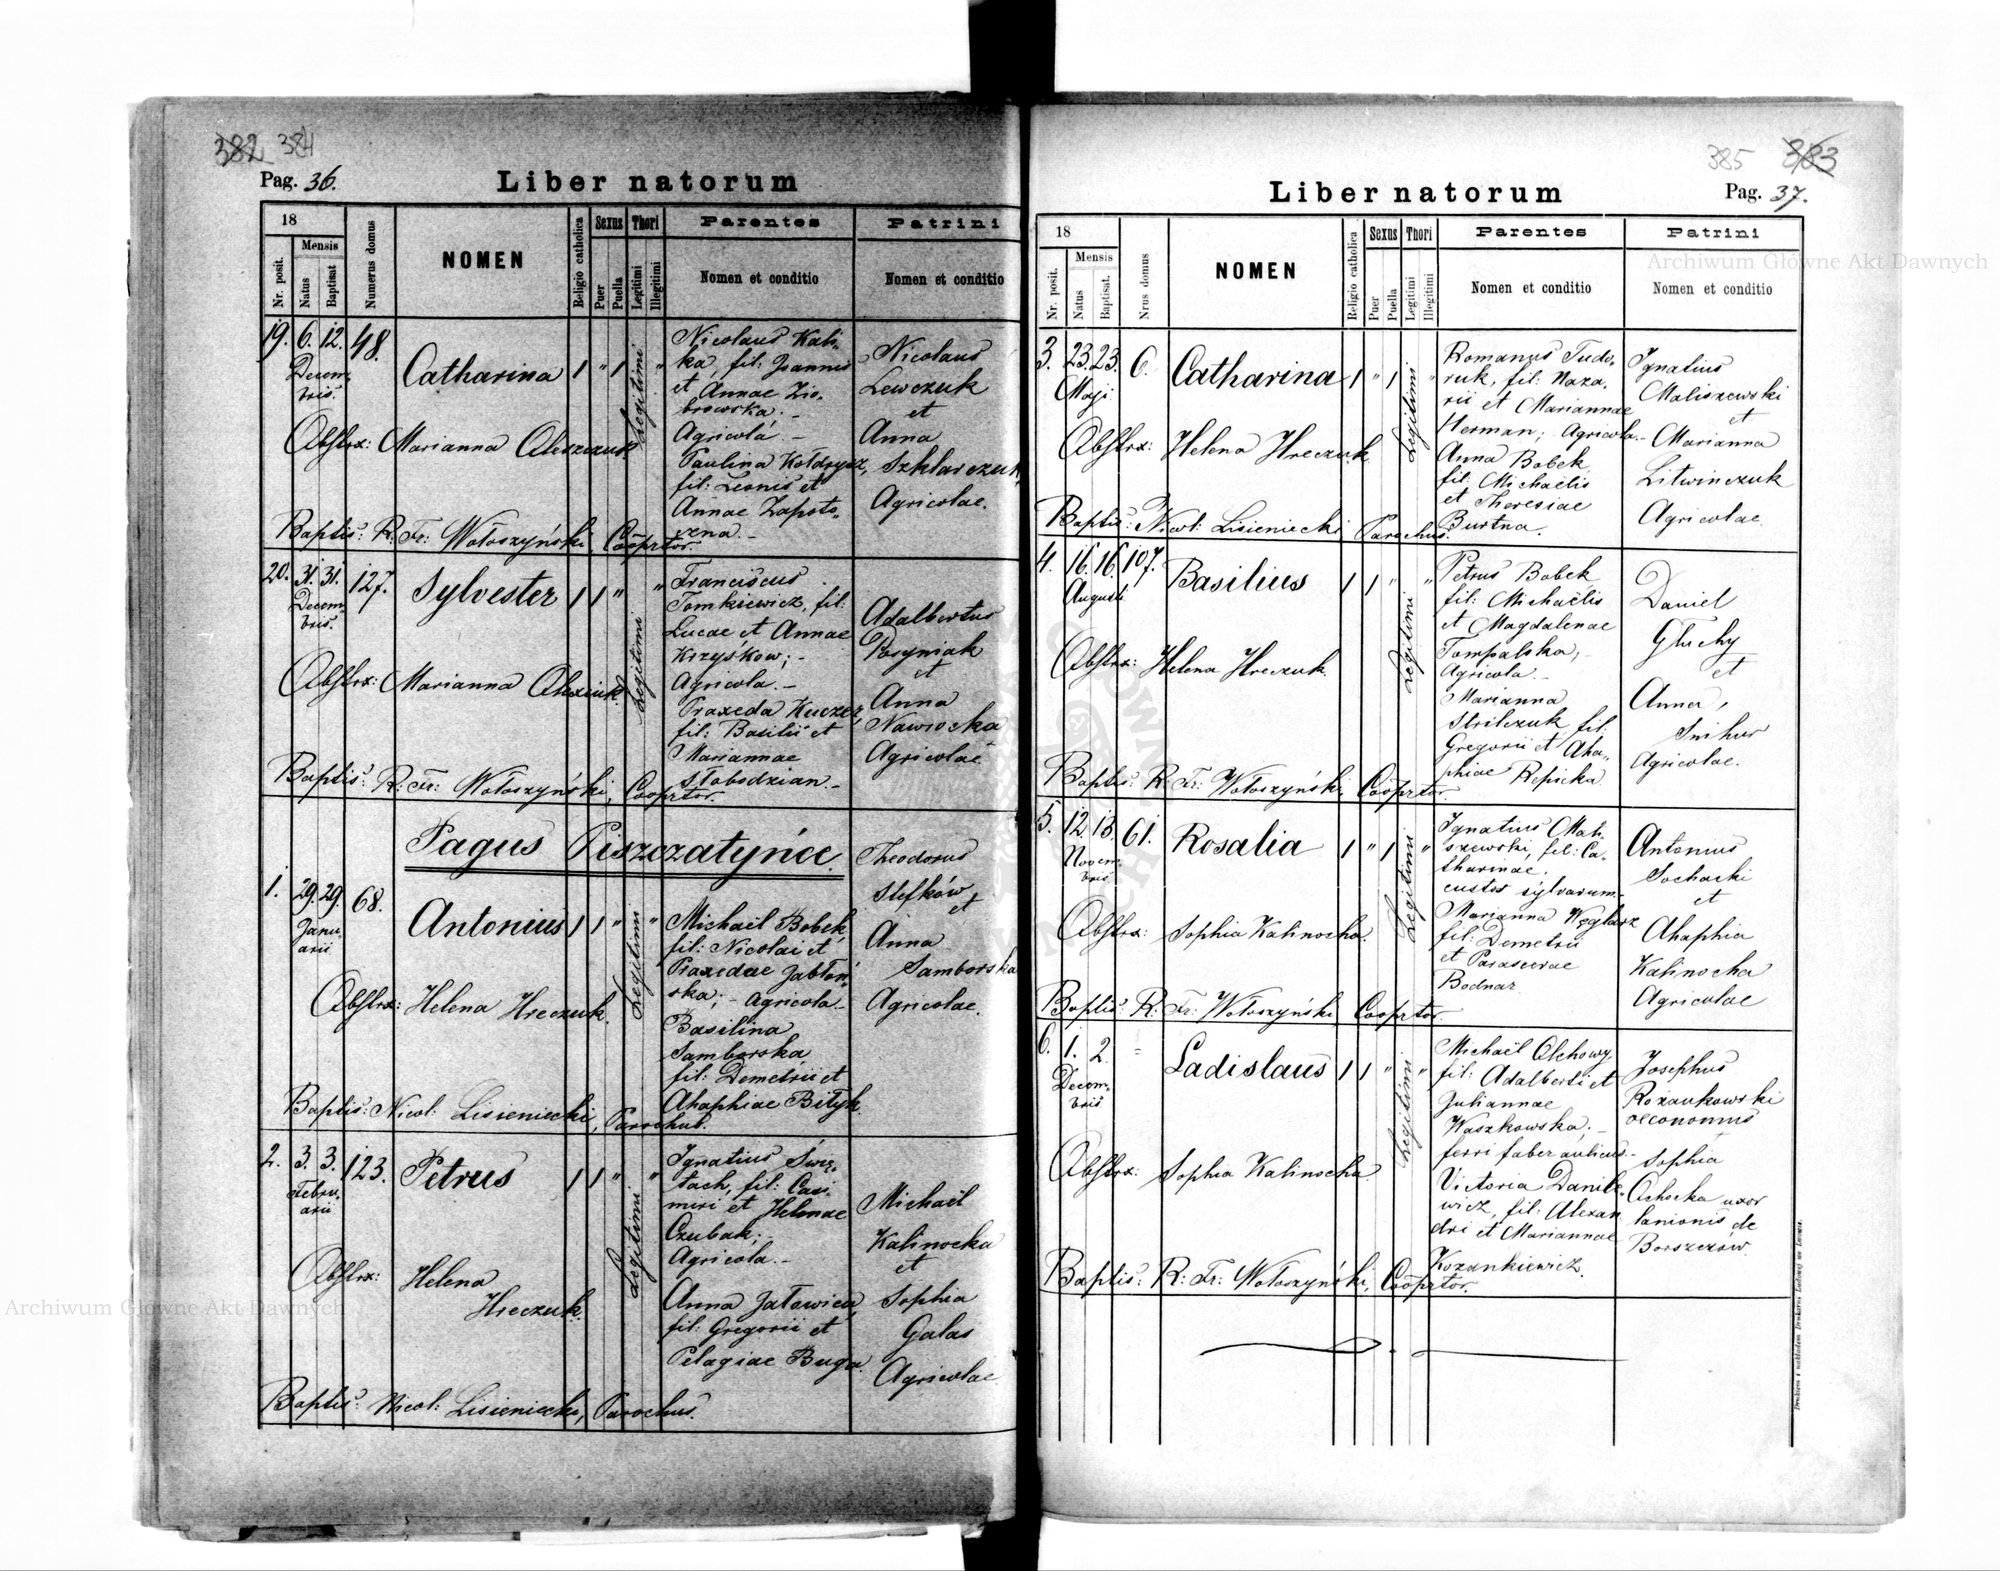 382 384
Pag. 36.
Liber natorum
18
Mensis
Nr. posit.
Natus
Baptisat
Numerus domus
NOMEN
Religio catholica
Sexus
Puer
Puella
Thori
Legitimi
Illegitimi
Parentes
Nomen et conditio
Patrini
Nomen et conditio
19. 6. 12. 48.
Decem-
bris.
Catharina 1 " 1 Legitimi "
Nicolaus Kali-
ka, fil: Joannis
et Annae Zio-
browska. -
Agricola. -
Paulina Kołdrysz,
fil: Leonis et
Annae Zapoto-
czna. -
Nicolaus
Lewczuk
et
Anna
Szklarczuk,
Agricolae.
Obstrx: Marianna Oleszczuk
Baptis: R. Fr: Wołoszyński, Cooprtor.
20. 31. 31. 127.
Decem-
bris.
Sylvester 1 1 " Legitimi "
Franciscus
Tomkiewicz, fil:
Lucae et Annae
Krzyśkow; -
Agricola. -
Praxeda Kuczer,
fil: Basilii et
Mariannae
Słobodzian. -
Adalbertus
Posyniak
et
Anna
Nawrocka
Agricolae.
Obstrx: Marianna Olexiuk.
Baptis: R: Fr: Wołoszyński, Cooprtor.
Pagus Piszczatyńce.
1. 29. 29. 68.
Janu-
arii
Antonius 1 1 " Legitimi "
Michaël Bobek,
fil: Nicolai et
Praxedae Jabłoń-
ska; - Agricola. -
Basilina
Samborska,
fil: Demetrii et
Ahaphiae Bityk.
Theodorus
Stefków
et
Anna
Samborska
Agricolae.
Obstrx: Helena Hreczuk.
Baptis: Nicol: Lisieniecki, Parochus.
2. 3. 3. 123.
Febru-
arii
Petrus 1 1 " Legitimi "
Ignatius
fil: Casi-
miri et Helenae
Czubak;
Agricola. -
Anna Jatowica,
fil: Gregorii et
Pelagiae Buga.
Michaël
Kalinocka
et
Sophia
Galas
Agricolae
Obstrx: Helena
Hreczuk.
Baptis: Nicol: Lisieniecki, Parochus.
385 383
Liber natorum
Pag. 37.
18
Mensis
Nr. posit.
Natus
Baptisat.
Nrus domus
NOMEN
Religio catholica
Sexus
Puer
Puella
Thori
Legitimi
Illegitimi
Parentes
Nomen et conditio
Patrini
Nomen et conditio
3. 23. 23. 6.
Maji
Catharina 1 " 1 Legitimi "
Romanus Fedo-
ruk, fil: Naza-
rii et Mariannae
Herman; Agricola. -
Anna Bobek,
fil: Michaëlis
et Theresiae
Burtna.
Ignatius
Maliszewski
et
Marianna
Litwinczuk
Agricolae.
Obstrx: Helena Hreczuk.
Baptis: Nicol: Lisieniecki, Parochus.
4. 16. 16. 107.
Augusti
Basilius 1 1 " Legitimi "
Petrus Bobek,
fil: Michaëlis
et Magdalenae
Tompalska; -
Agricola. -
Marianna
Strilczuk, fil:
Gregorii et Aha-
phiae Repicka.
Daniel
Głuchy
et
Anna,
Snihur
Agricolae.
Obstrx: Helena Hreczuk.
Baptis: R: Fr: Wołoszyński, Cooprtor.
5. 12. 13. 61.
Novem-
bris
Rosalia 1 " 1 Legitimi "
Ignatius Mali-
szewski, fil: Ca-
tharinae,
custos sylvarum. -
Marianna Węglarz
fil: Demetrii
et Parascevae
Bodnar
Antonius
Sochacki
et
Ahaphia
Kalinocka
Agricolae
Obstrx: Sophia Kalinocka.
Baptis: R: Fr: Wołoszyński, Cooprtor.
6. 1. 2. "
Decem-
bris
Ladislaus 1 1 " Legitimi "
Michaël Olchowy,
fil: Adalberti et
Juliannae
Waszkowska; -
ferri faber aulicus. -
Victoria Danile-
wicz, fil: Alexan-
dri et Mariannae
Kozankiewicz.
Josephus
Rozankowski
oeconomus
Sophia
Ochocka uxor
lanionis de
Borszczów.
Obstrx: Sophia Kalinocka.
Baptis: R: Fr: Wołoszyński, Cooprtor.
Drukiem i nakładem Drukarni Ludowej we Lwowie.
Archiwum Główne Akt Dawnych
Archiwum Główne Akt Dawnych